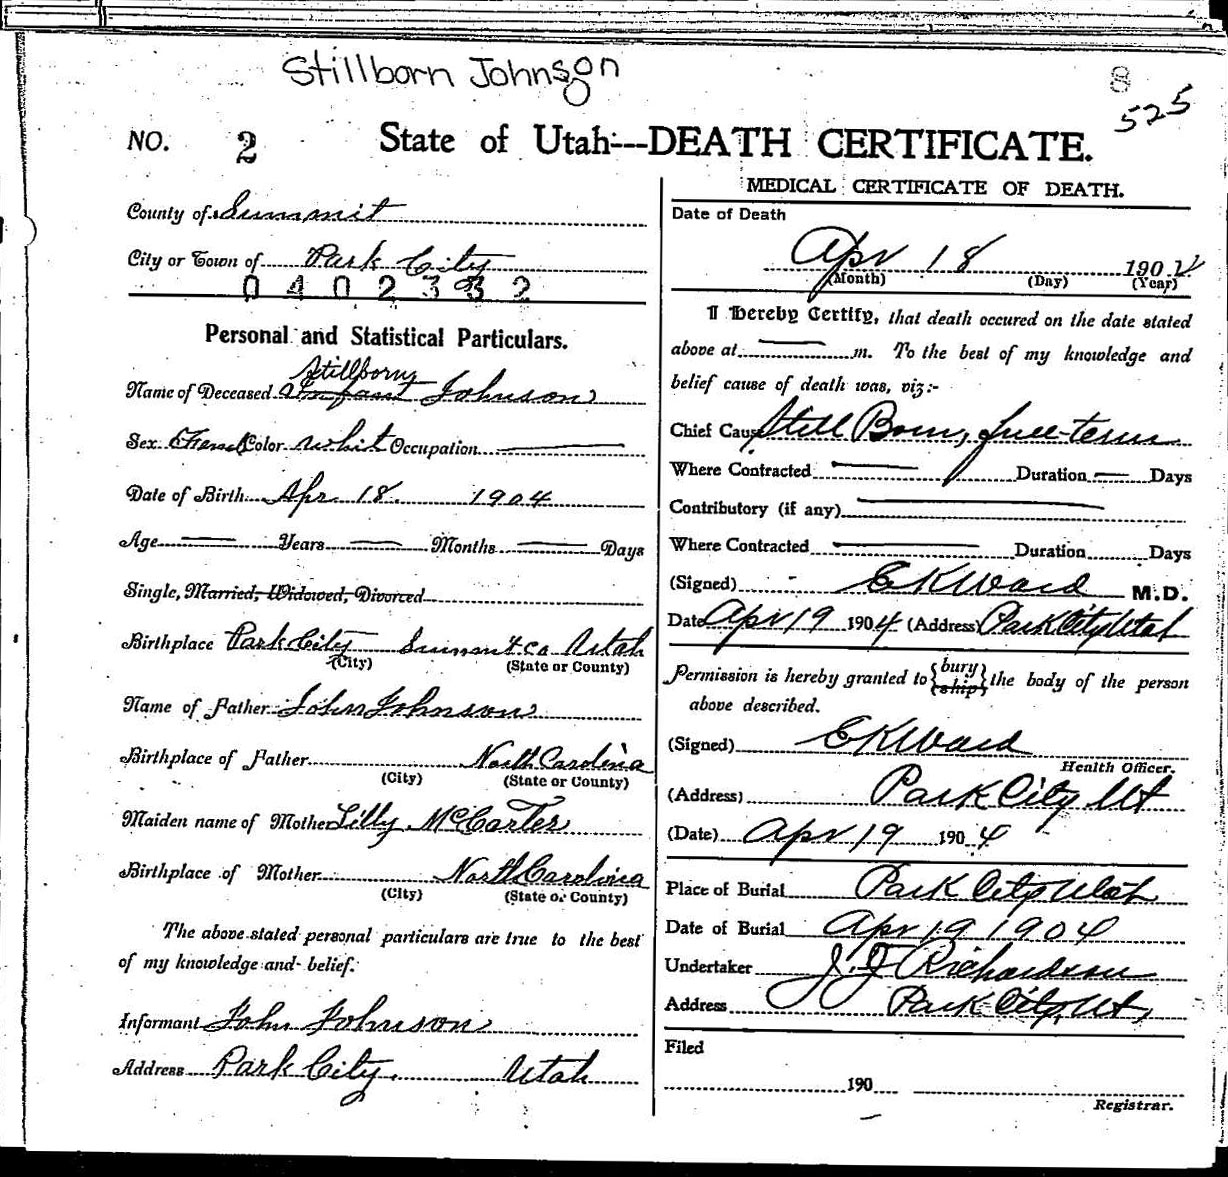 Stillborn Johnson
8
525
NO. 2 State of Utah---DEATH CERTIFICATE.
County of Summit
City or Town of Park City
0402332
Personal and Statistical Particulars.
Stillborn
Name of Deceased Infant Johnson
Sex Female Color White Occupation
Date of Birth Apr 18 1904
Age Years Months Days
Single, Married, Widowed, Divorced
Birthplace Park City Summit Co Utah
(City) (State or County)
Name of Father John Johnson
Birthplace of Father North Carolina
(City) (State or County)
Maiden name of Mother Lilly McCarter
Birthplace of Mother North Carolina
(City) (State or County)
The above stated personal particulars are true to the best
of my knowledge and belief.
Informant John Johnson
Address Park City, Utah
MEDICAL CERTIFICATE OF DEATH.
Date of Death
Apr 18 190
(Month) (Day) (Year)
I Hereby Certify, that death occured on the date stated
above at m. To the best of my knowledge and
belief cause of death was, viz:-
Chief Cause Still Born, full-term
Where Contracted Duration Days
Contributory (if any)
Where Contracted Duration Days
(Signed) E K Ward M.D.
Date Apr 19 1904 (Address) Park City Utah
Permission is hereby granted to {bury
ship} the body of the person
above described.
(Signed) E K Ward
Health Officer.
(Address) Park City Ut
(Date) Apr 19 1904
Place of Burial Park City Utah
Date of Burial Apr 19 1904
Undertaker J. F Richardson
Address Park City, Ut,
Filed
190
Registrar.